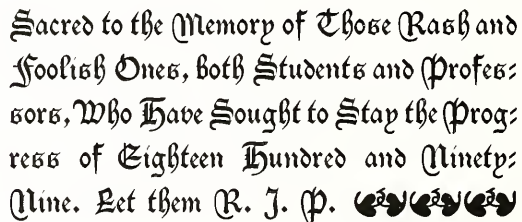 Sacred to the Memory of Those Rash and
Foolish Ones, both Students and Profes-
sors, Who Have Sought to Stay the Prog-
ress of Eighteen Hundred and Ninety-
Nine. Let them R. J. P.